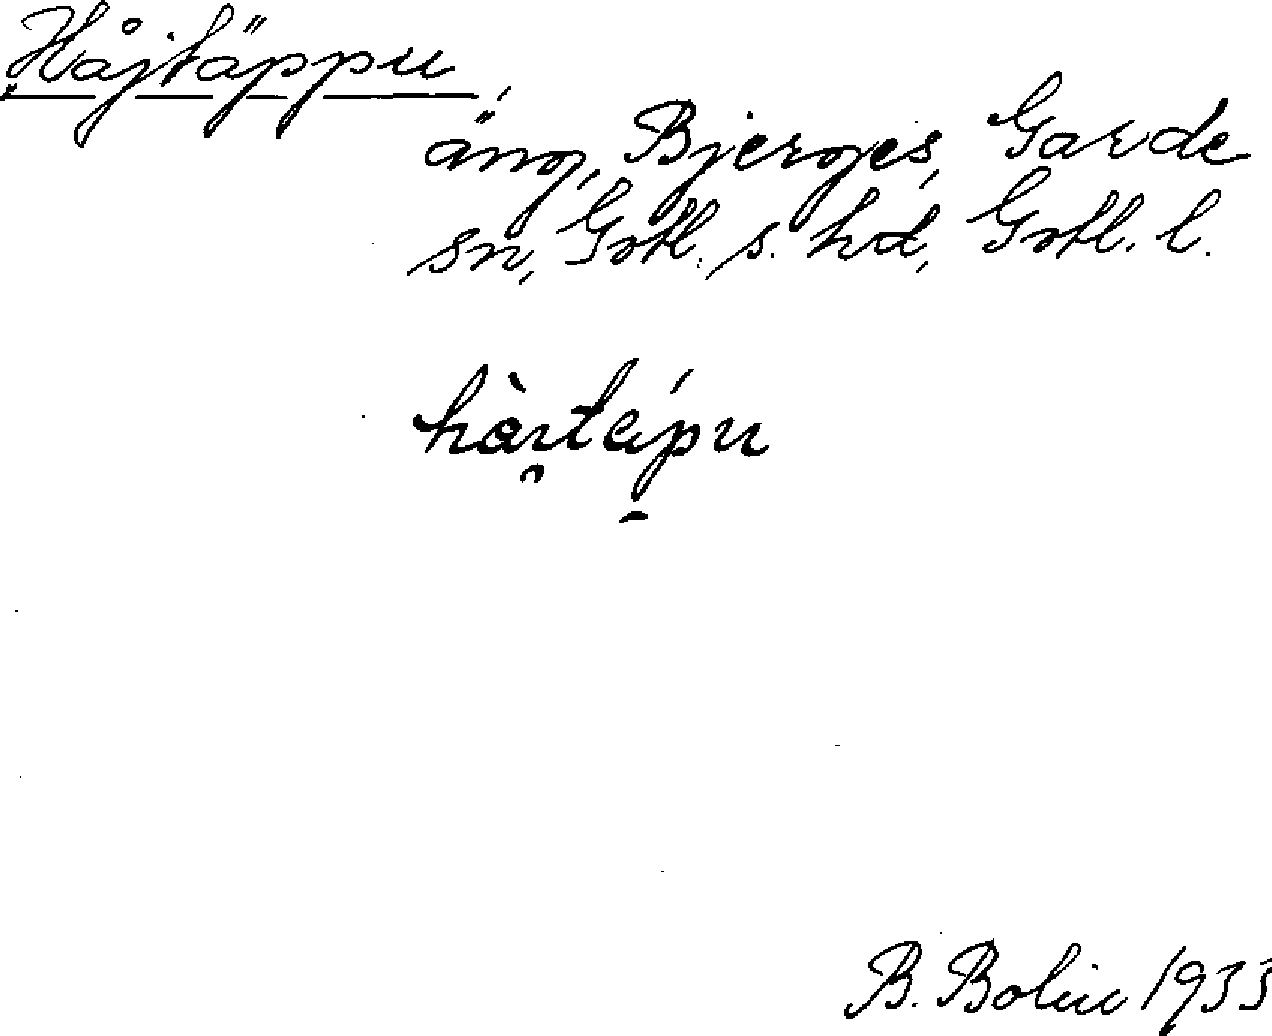 Håjtäppu,
äng, Bjerges, Garde
sn, Gotl. s. hd, Gotl. l.
B. Bolin 1933